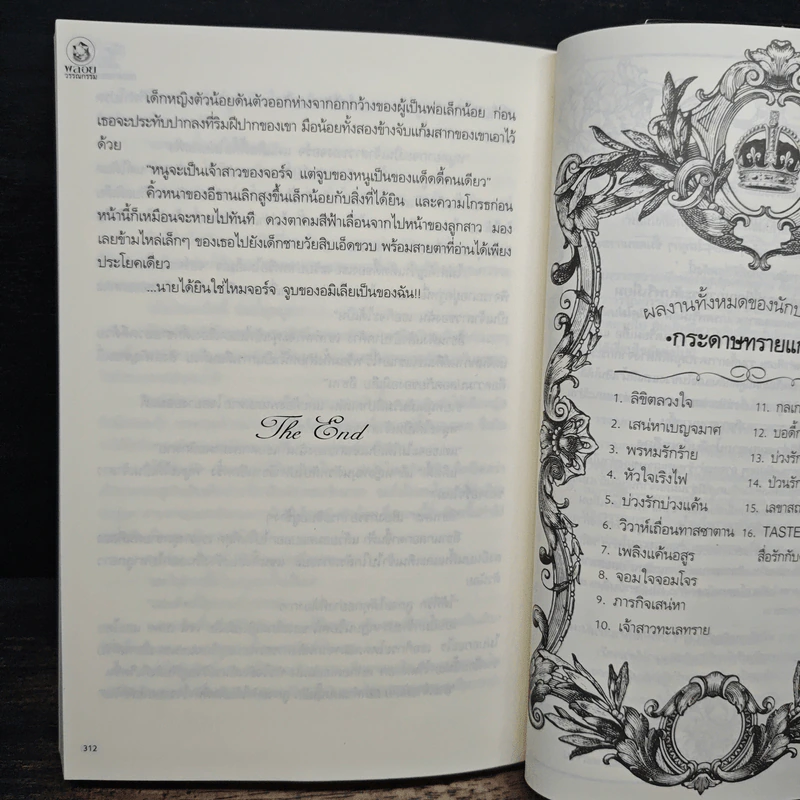 พลอย
วรรณกรรม
เด็กหญิงตัวน้อยดันตัวออกห่างจากอกกว้างของผู้เป็นพ่อเล็กน้อย ก่อน
เธอจะประทับปากลงที่ริมฝีปากของเขา มือน้อยทั้งสองข้างจับแก้มสากของเขาเอาไว้
ด้วย
“หนูจะเป็นเจ้าสาวของจอร์จ แต่จูบของหนูเป็นของแด็ดดี้คนเดียว”
คิ้วหนาของอีธานเลิกสูงขึ้นเล็กน้อยกับสิ่งที่ได้ยิน และความโกรธก่อน
หน้านี้ก็เหมือนจะหายไปทันที ดวงตาคมสีฟ้าเลื่อนจากใบหน้าของลูกสาว มอง
เลยข้ามไหล่เล็กๆ ของเธอไปยังเด็กชายวัยสิบเอ็ดขวบ พร้อมสายตาที่อ่านได้เพียง
ประโยคเดียว
...นายได้ยินใช่ไหมจอร์จ จูบของอมิเลียเป็นของฉัน!!
The End
312
ผลงานทั้งหมดของนัก
•กระดาษทราย
1. ลิขิตลวงใจ
2. เสน่หาเบญจมาศ
3. พรหมรักร้าย
4. หัวใจเริงไฟ
5. บ่วงรักบ่วงแค้น
6. วิวาห์เถื่อนทาสซาตาน
7. เพลิงแค้นอสูร
8. จอมใจจอมโจร
9. ภารกิจเสน่หา
10. เจ้าสาวทะเลทราย
11. กล
12. บอดี้
13. บ่วงรั
14. ป่วนรัก
15. เลขา
16. TASTE
สื่อรักกับ